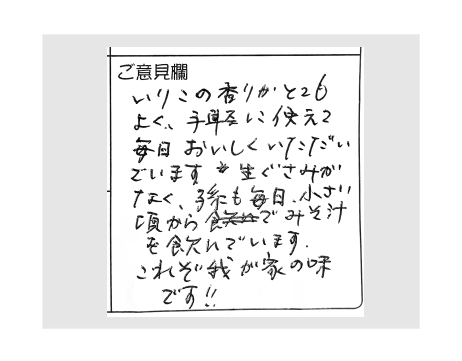 ご意見欄
いりこの香りがとても
よく、手軽に使えて
毎日おいしくいただい
ています 生ぐさみが
なく、孫も毎日、小さい
頃から でみそ汁
を飲んでいます。
これぞ我が家の味
です!!